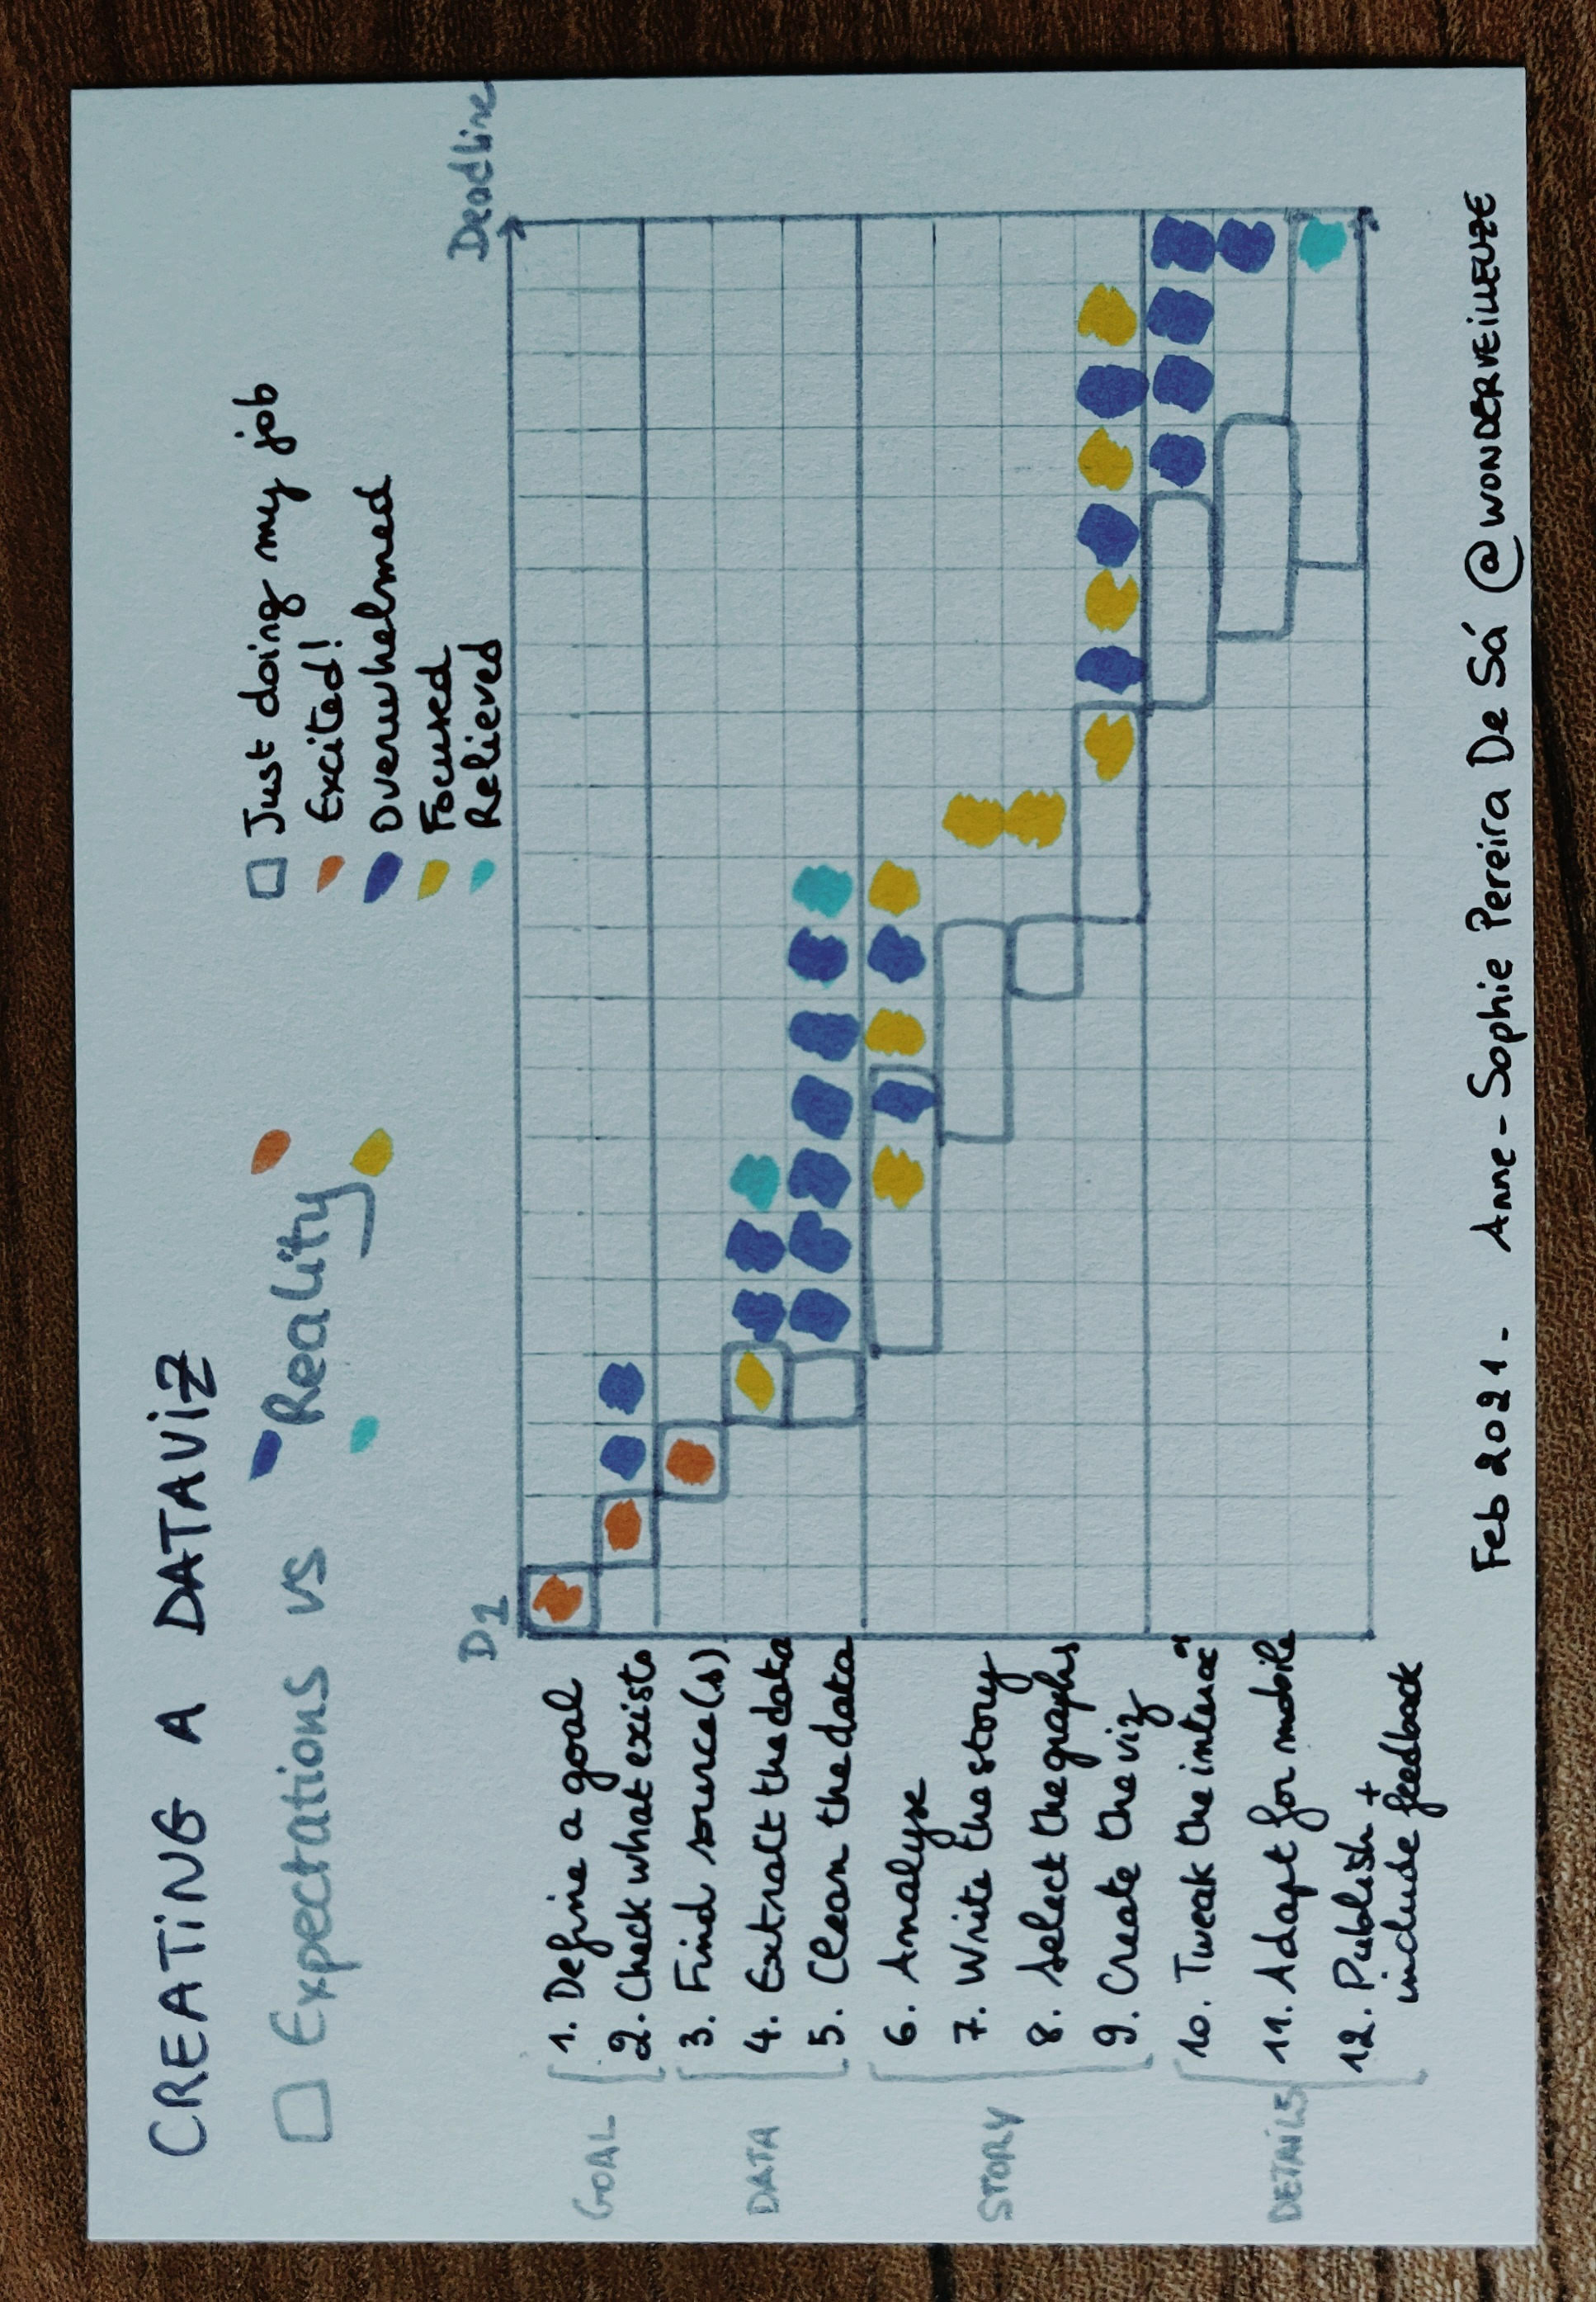 CREATING A DATAVIZ
Expectations vs Reality
Just doing my job
Excited!
Overwhelmed
Focused
Relieved
D1
Deadline
GOAL
1. Define a goal
2. Check what exists
DATA
3. Find source(s)
4. Extract the data
5. Clean the data
STORY
6. Analyse
7. Write the story
8. Select the graphs
9. Create the viz
DETAILS
10. Tweak the interac°
11. Adapt for mobile
12. Publish +
include feedback
Feb 2021 - Anne-Sophie Pereira De Sá @WONDERVEILLEUZE